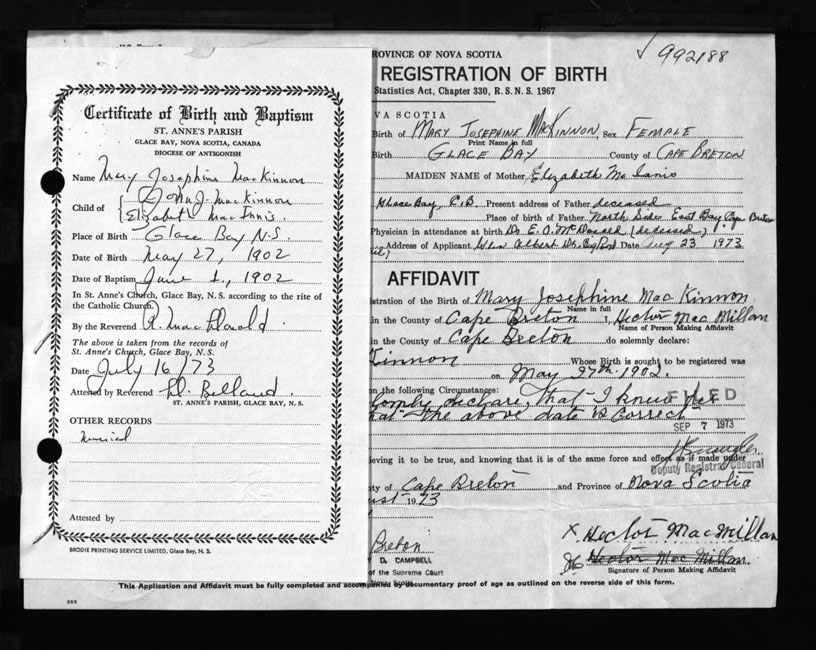 Certificate of Birth and Baptism
ST. ANNE'S PARISH
GLACE BAY, NOVA SCOTIA, CANADA
DIOCESE OF ANTIGONISH
Name Mary Josephine MacKinnon
Child of John J. MacKinnon
Elizabeth MacInnis.
Place of Birth Glace Bay N.S.
Date of Birth May 27, 1902
Date of Baptism June 1, 1902
In St. Anne's Church, Glace Bay, N.S. according to the rite of
the Catholic Church.
By the Reverend R. Mac
The above is taken from the records of
St. Anne's Church, Glace Bay, N.S.
Date July 16/73
Attested by Reverend
ST. ANNE'S PARISH, GLACE BAY, N. S.
OTHER RECORDS
Attested by
BRODIE PRINTING SERVICE LIMITED, Glace Bay, N. S.
992188
ROVINCE OF NOVA SCOTIA
REGISTRATION OF BIRTH
Statistics Act, Chapter 330, R. S. N. S. 1967
VA SCOTIA
Birth of MARY JOSEPHINE MACKINNON, Sex FEMALE
Print Name in full
Birth GLACE BAY County of CAPE BRETON
MAIDEN NAME of Mother Elizabeth Mc Innis
Glace Bay, C.B. Present address of Father deceased
Place of birth of Father North Side East Bay Cape Breton
Physician in attendance at birth Dr. E. O. McDonald (deceased)
Address of Applicant Albert Date Aug 23 1973
AFFIDAVIT
istration of the Birth of Mary Josephine Mac Kinnon
Name in full
in the County of Cape Breton I, Hector Mac Millan
Name of Person Making Affidavit
in the County of Cape Breton do solemnly declare:
Kinnon Whose Birth is sought to be registered was
on May 27th 1902.
on the following Circumstances:
declare, that I knew her
hat the above date is correct
FILED
SEP 7 1973
Deputy Registrar General
ieving it to be true, and knowing that it is of the same force and effect as if made under
ty of Cape Breton and Province of Nova Scotia
ust 1973
Breton
D. CAMPBELL
of the Supreme Court
X. Hector MacMillan
Hector Mac Millan.
Signature of Person Making Affidavit
This Application and Affidavit must be fully completed and accompanied by documentary proof of age as outlined on the reverse side of this form.